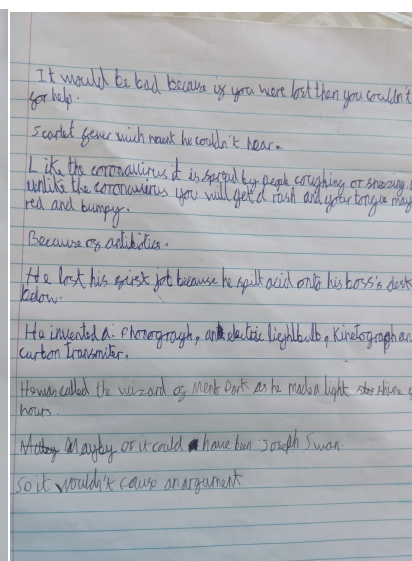 It would be bad because if you were lost then you couldn't
for help.
Scarlet fever wich ment he couldn't hear.
Like the coronavirus it is spread by people coughing or sneezing.
unlike the coronavirus you will get a rash and your tongue may
red and bumpy.
Because of antibiotics.
He lost his first job because he spilt acid onto his boss's desk
below.
He invented a: Phonograph, an electric lightbulb, Kinetograph an
carbon transmiter.
He was called the wizard of Menl Park as he made a light shine
hours.
Mayby or it could have ben Joseph Swan.
So it wouldn't cause an argument